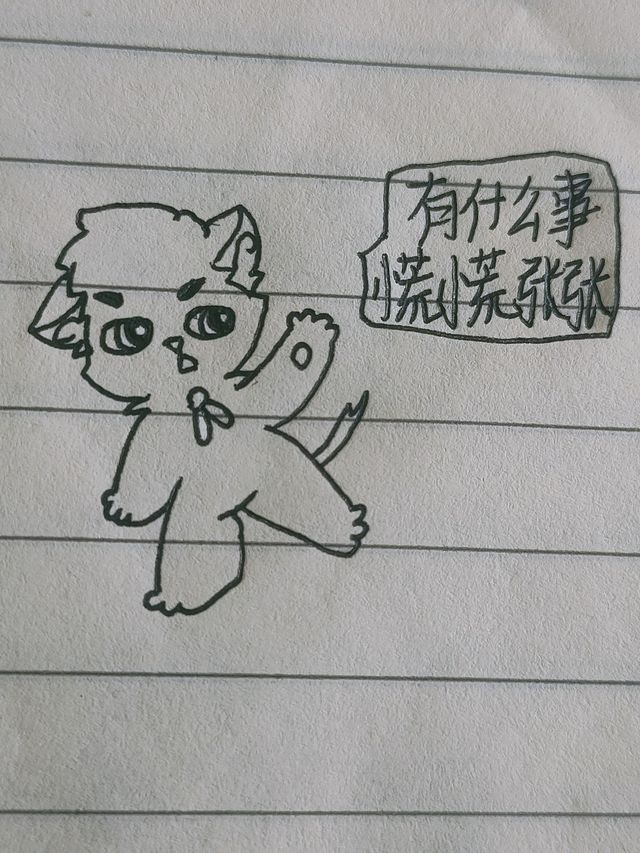 有什么事
慌慌张张